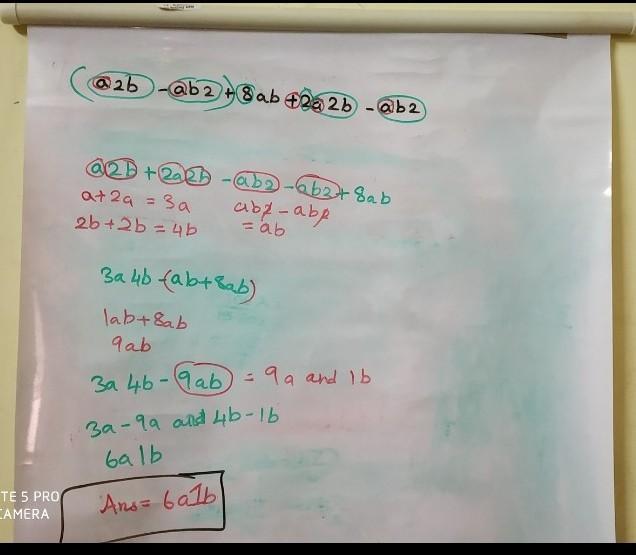 (a2b - ab2) + 8ab + 2a2b - ab2
a2b + 2a2b - ab2 - ab2 + 8ab
a+2a = 3a ab2 - ab2
2b+2b = 4b = ab
3a 4b-(ab+8ab)
1ab+8ab
9ab
3a 4b - 9ab = 9a and 1b
3a-9a and 4b-1b
6a1b
Ans= 6a1b
TE 5 PRO
CAMERA